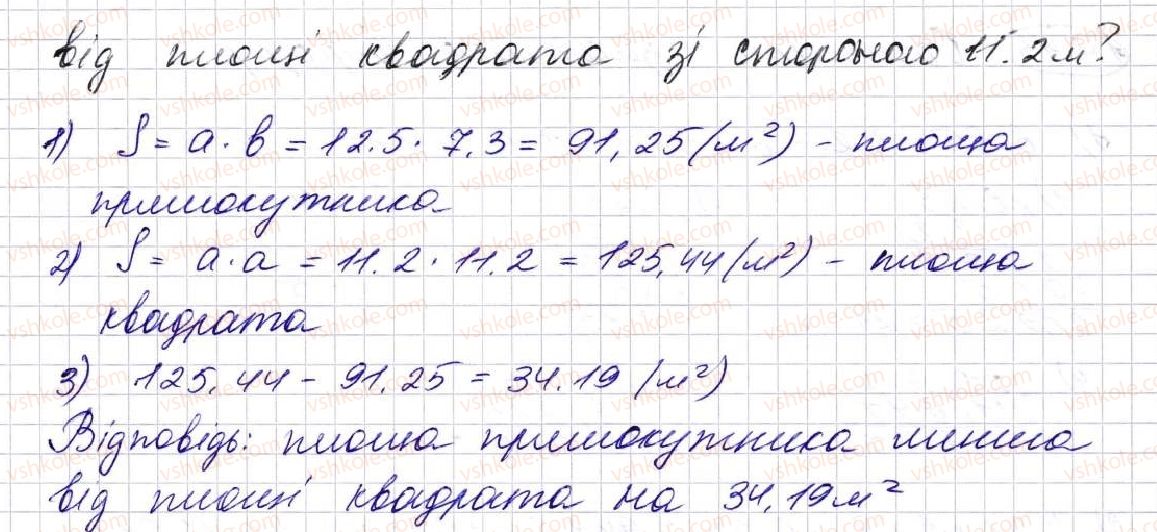 від площі квадрата зі стороною 11.2м?
1) S = a · b = 12.5 · 7.3 = 91,25 (м²) - площа
прямокутника
2) S = a · a = 11.2 · 11.2 = 125,44 (м²) - площа
квадрата
3) 125,44 - 91.25 = 34.19 (м²)
Відповідь: площа прямокутника менша
від площі квадрата на 34,19 м²